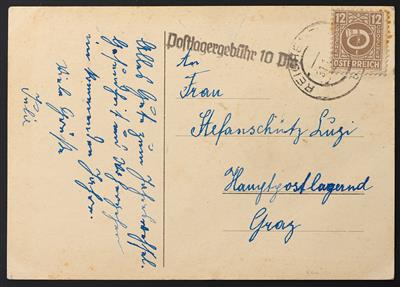 Alles Gute zum Jahreswechsel
Gesundheit und Wohlergehen
im kommenden Jahre.
Viele Grüße
Julie
Postlagergebühr 10 Pfg
12 12
ÖSTERREICH
An
Frau
Stefanschütz Luzi
Hauptpostlagernd
Graz